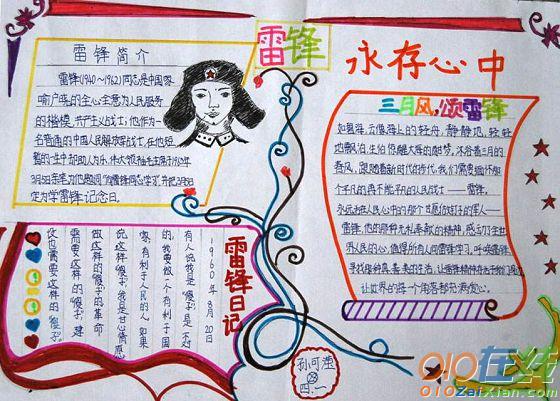 雷锋
永存心中
雷锋简介
雷锋(1940～1962)同志是中国家
喻户晓的全心全意为人民服务
的楷模,共产主义战士,他作为一
名普通的中国人民解放军战士,在他短
暂的一生中却助人为乐,伟大领袖毛主席于1963年
3月5日亲笔为他题词"向雷锋同志学习",并把3月5日
定为学雷锋纪念日.
三月风,颂雷锋
不平凡的再不能平凡的人民战士——雷锋,
永远活在人民心中的那个甘愿做钉子的军人—
界人民的心,值得所有人向雷锋学习,呼唤雷锋
让世界的每个角落都充满爱心.
雷锋日记
1960年8月20日
有人说我是"傻子",是不对
的,我要做一个有利于国
家,有利于人民的人,如果
说这是"傻子",我是甘心情愿
做这样的"傻子"的,革命
需要这样的"傻子",建
设也需要这样的"傻子".
孙可滢
四.一
010在线
010ZaiXian.com